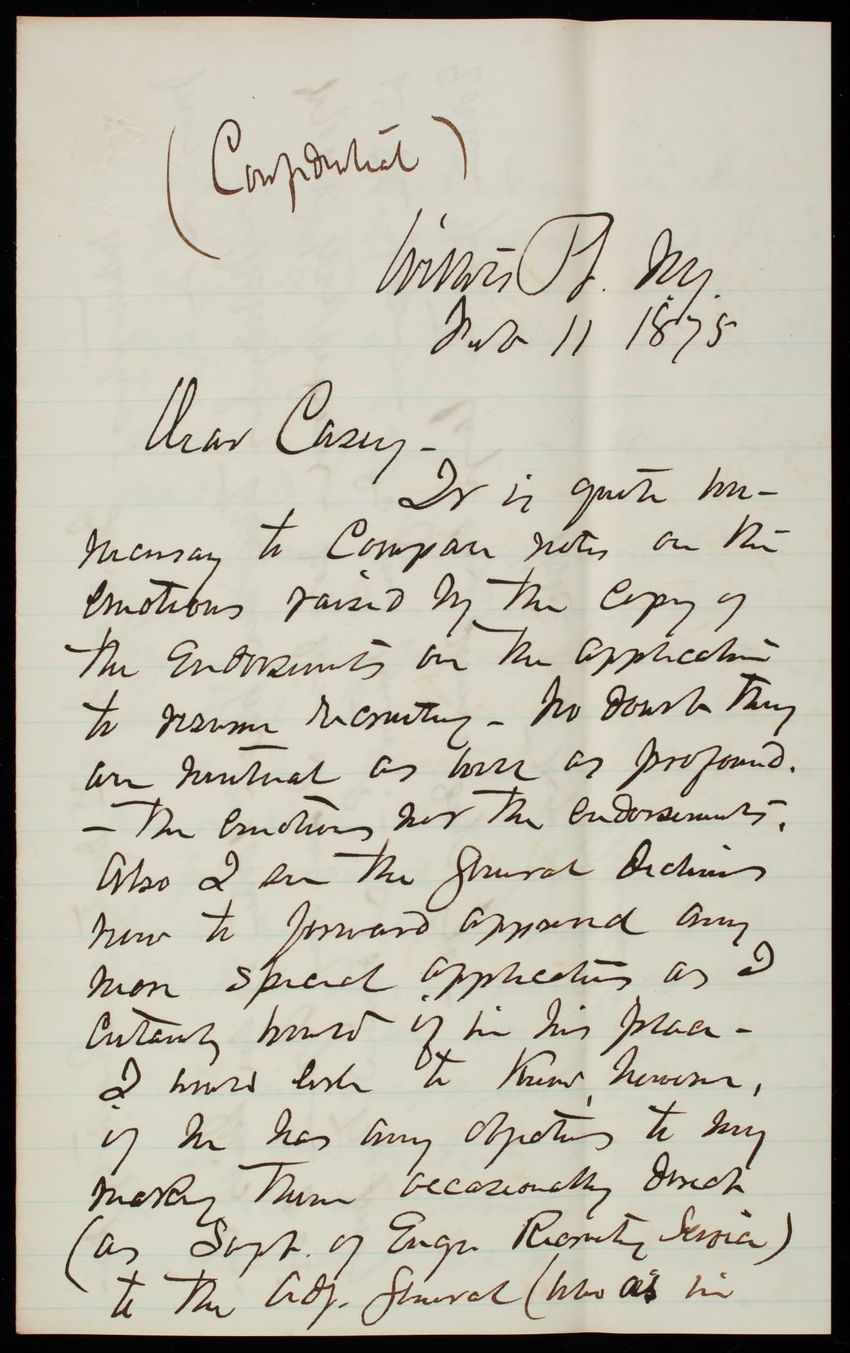 (Confidential)
Willets Pt. N.Y.
Feb 11 1875
Dear Casey -
It is quite un-
necessary to compare notes on the
emotions raised by the copy of
the endorsements on the application
to resume recruiting - No doubt they
are mutual as well as profound.
- The emotions not the endorsements.
Also I see the General declines
now to forward approved any
more special applications as I
certainly would if in his place -
I would like to know, however,
if he has any objections to my
making them occasionally direct
(as Supt. of Engr Recruiting Service)
to the Adj. General (who as in